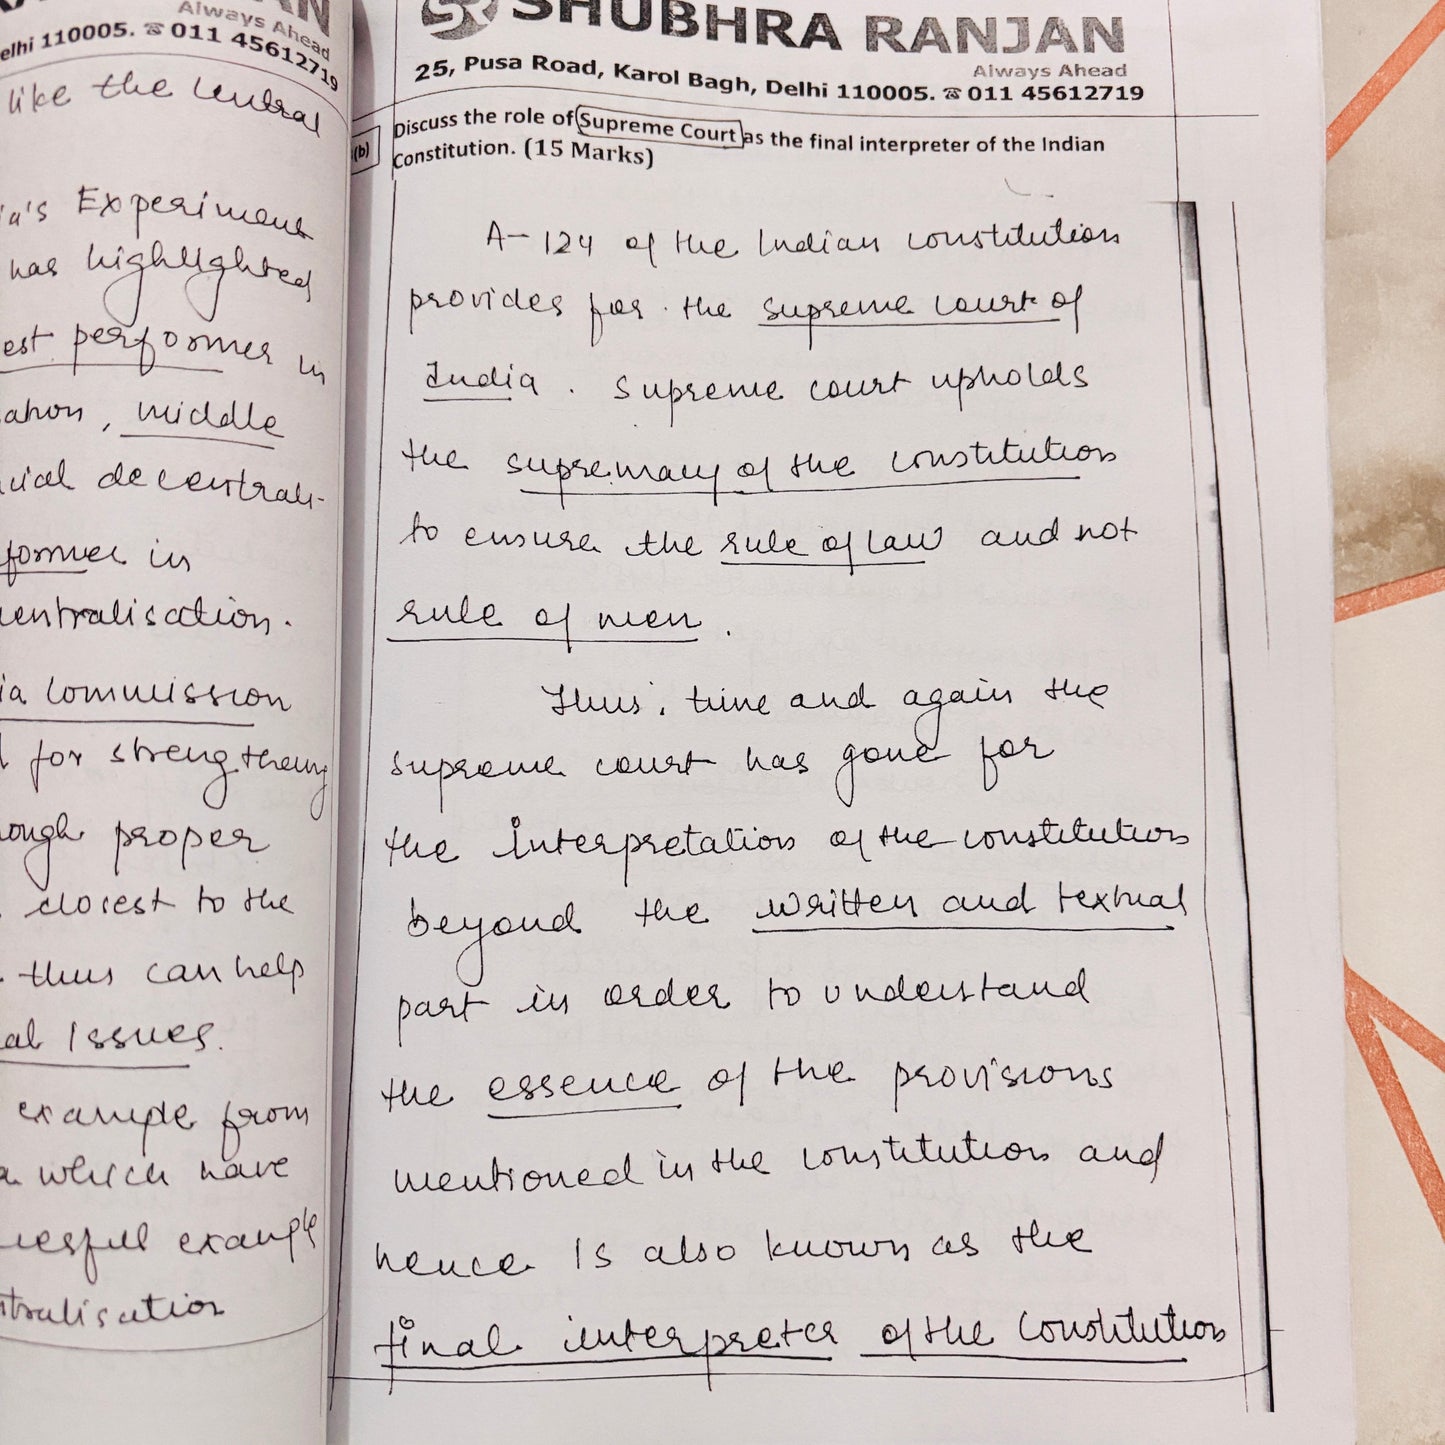 AN
Always Ahead
elhi 110005. ☎ 011 45612719
like the Central
ia's Experiment
has highlighted
est performer in
ation, middle
decentrali-
former in
centralisation.
ia Commission
for strengthening
ough proper
closest to the
thus can help
al Issues.
example from
which have
essful example
ntralisation
SR SHUBHRA RANJAN
Always Ahead
25, Pusa Road, Karol Bagh, Delhi 110005. ☎ 011 45612719
(b) Discuss the role of Supreme Court as the final interpreter of the Indian
Constitution. (15 Marks)
A-124 of the Indian constitution
provides for the supreme court of
India. Supreme court upholds
the supremacy of the constitution
to ensure the rule of law and not
rule of men.
Thus, time and again the
supreme court has gone for
the interpretation of the constitution
beyond the written and textual
part in order to understand
the essence of the provisions
mentioned in the constitution and
hence is also known as the
final interpreter of the Constitution